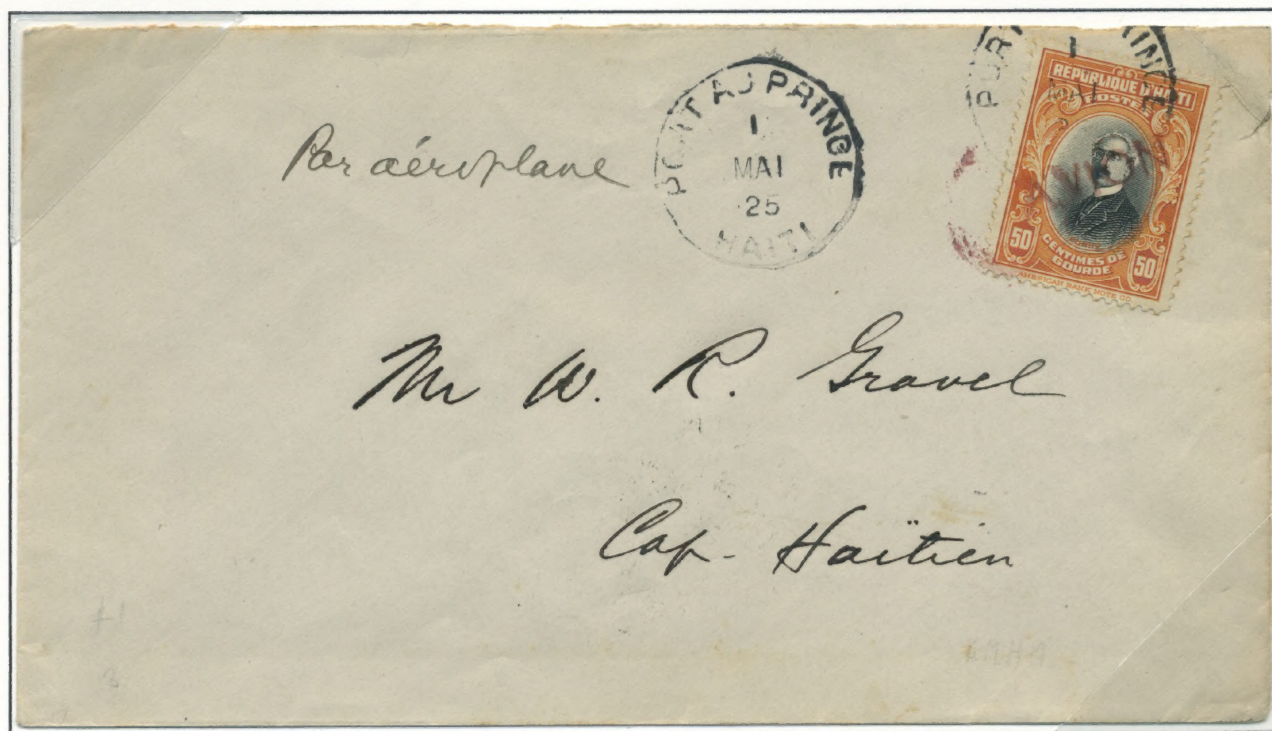 Par aéroplane
PORT AU PRINCE
1
MAI
25
HAITI
PORT PRINCE
1
REPUBLIQUE D'HAITI
POSTES
50
CENTIMES DE
GOURDE
50
AMERICAN BANK NOTE CO.
Mr W. R. Gravel
Cap-Haïtien